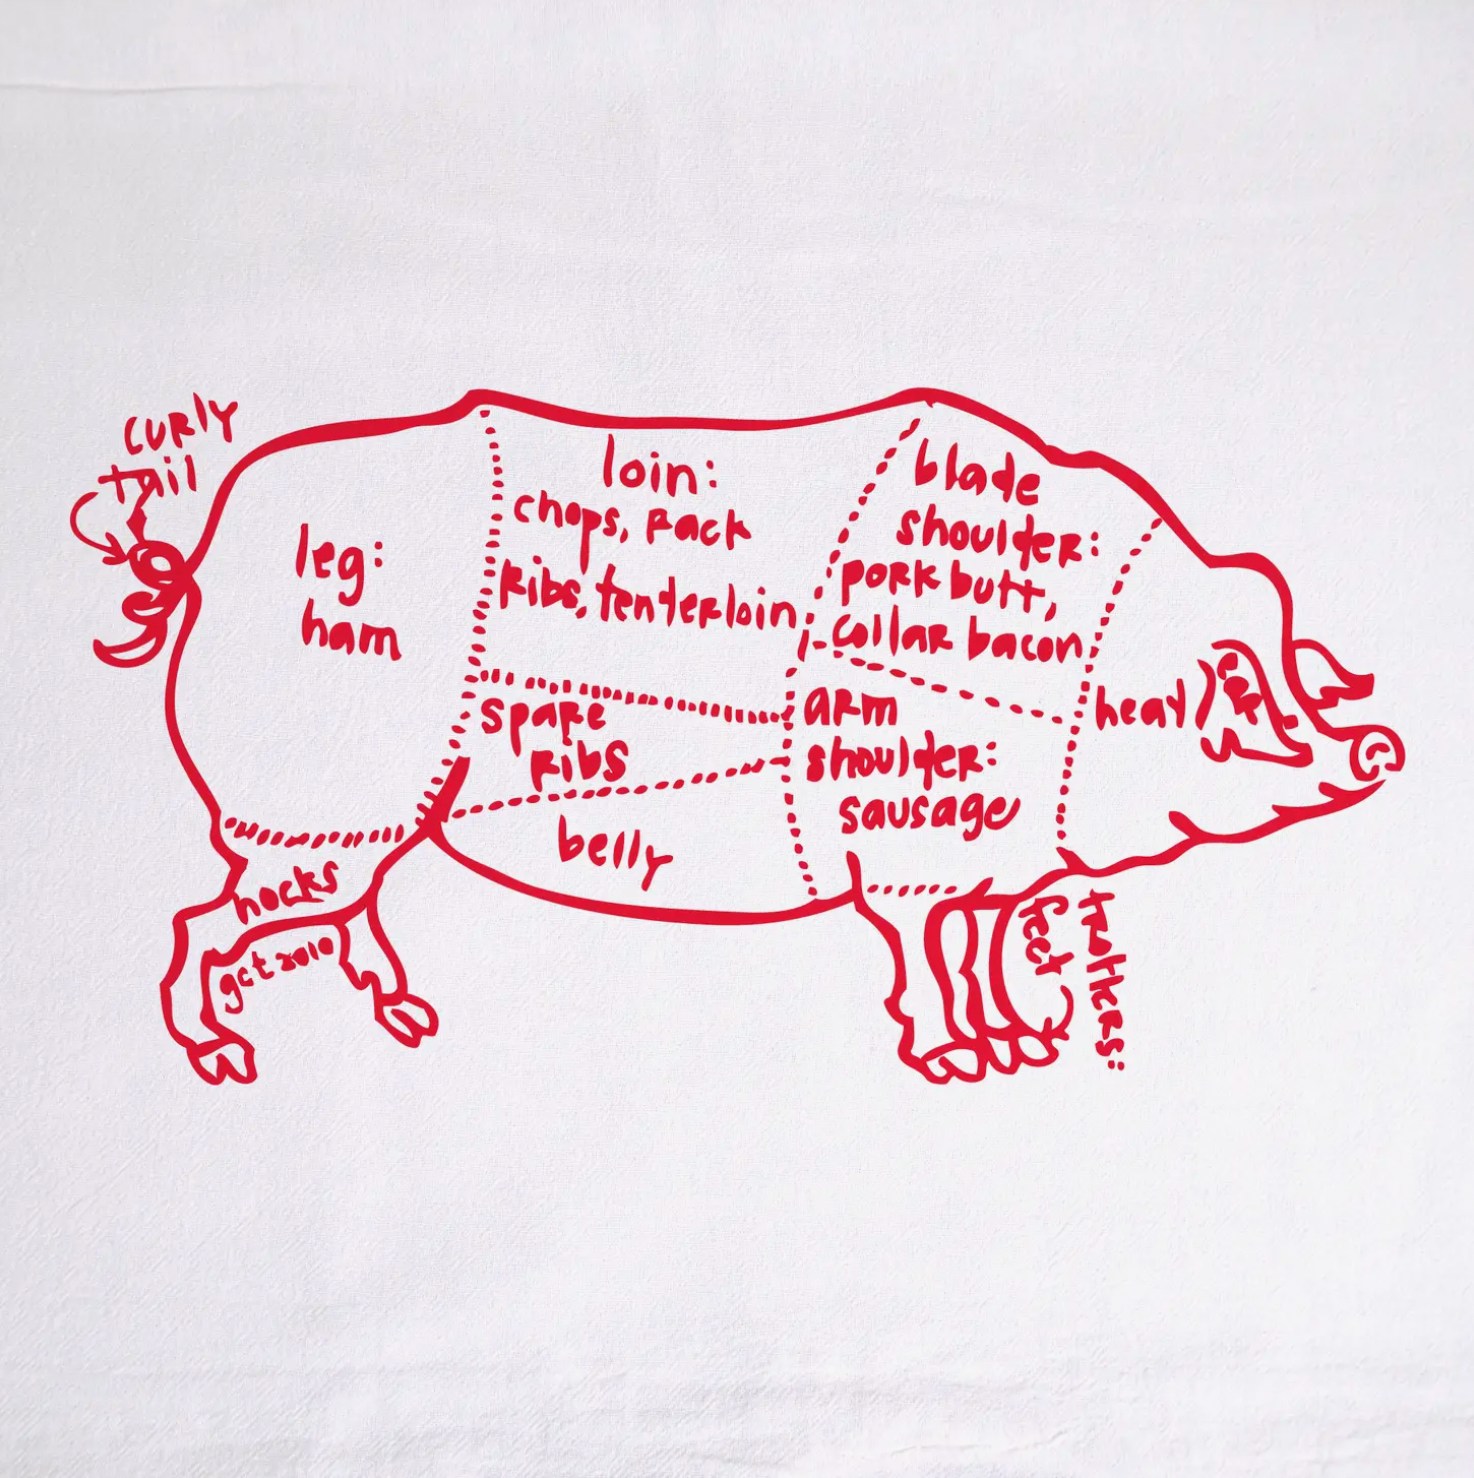 curly
tail
leg:
ham
loin:
chops, rack
ribs, tenderloin
blade
shoulder:
pork butt,
collar bacon
spare
ribs
belly
arm
shoulder:
sausage
head
ear
hocks
gct 2010
trotters:
feet